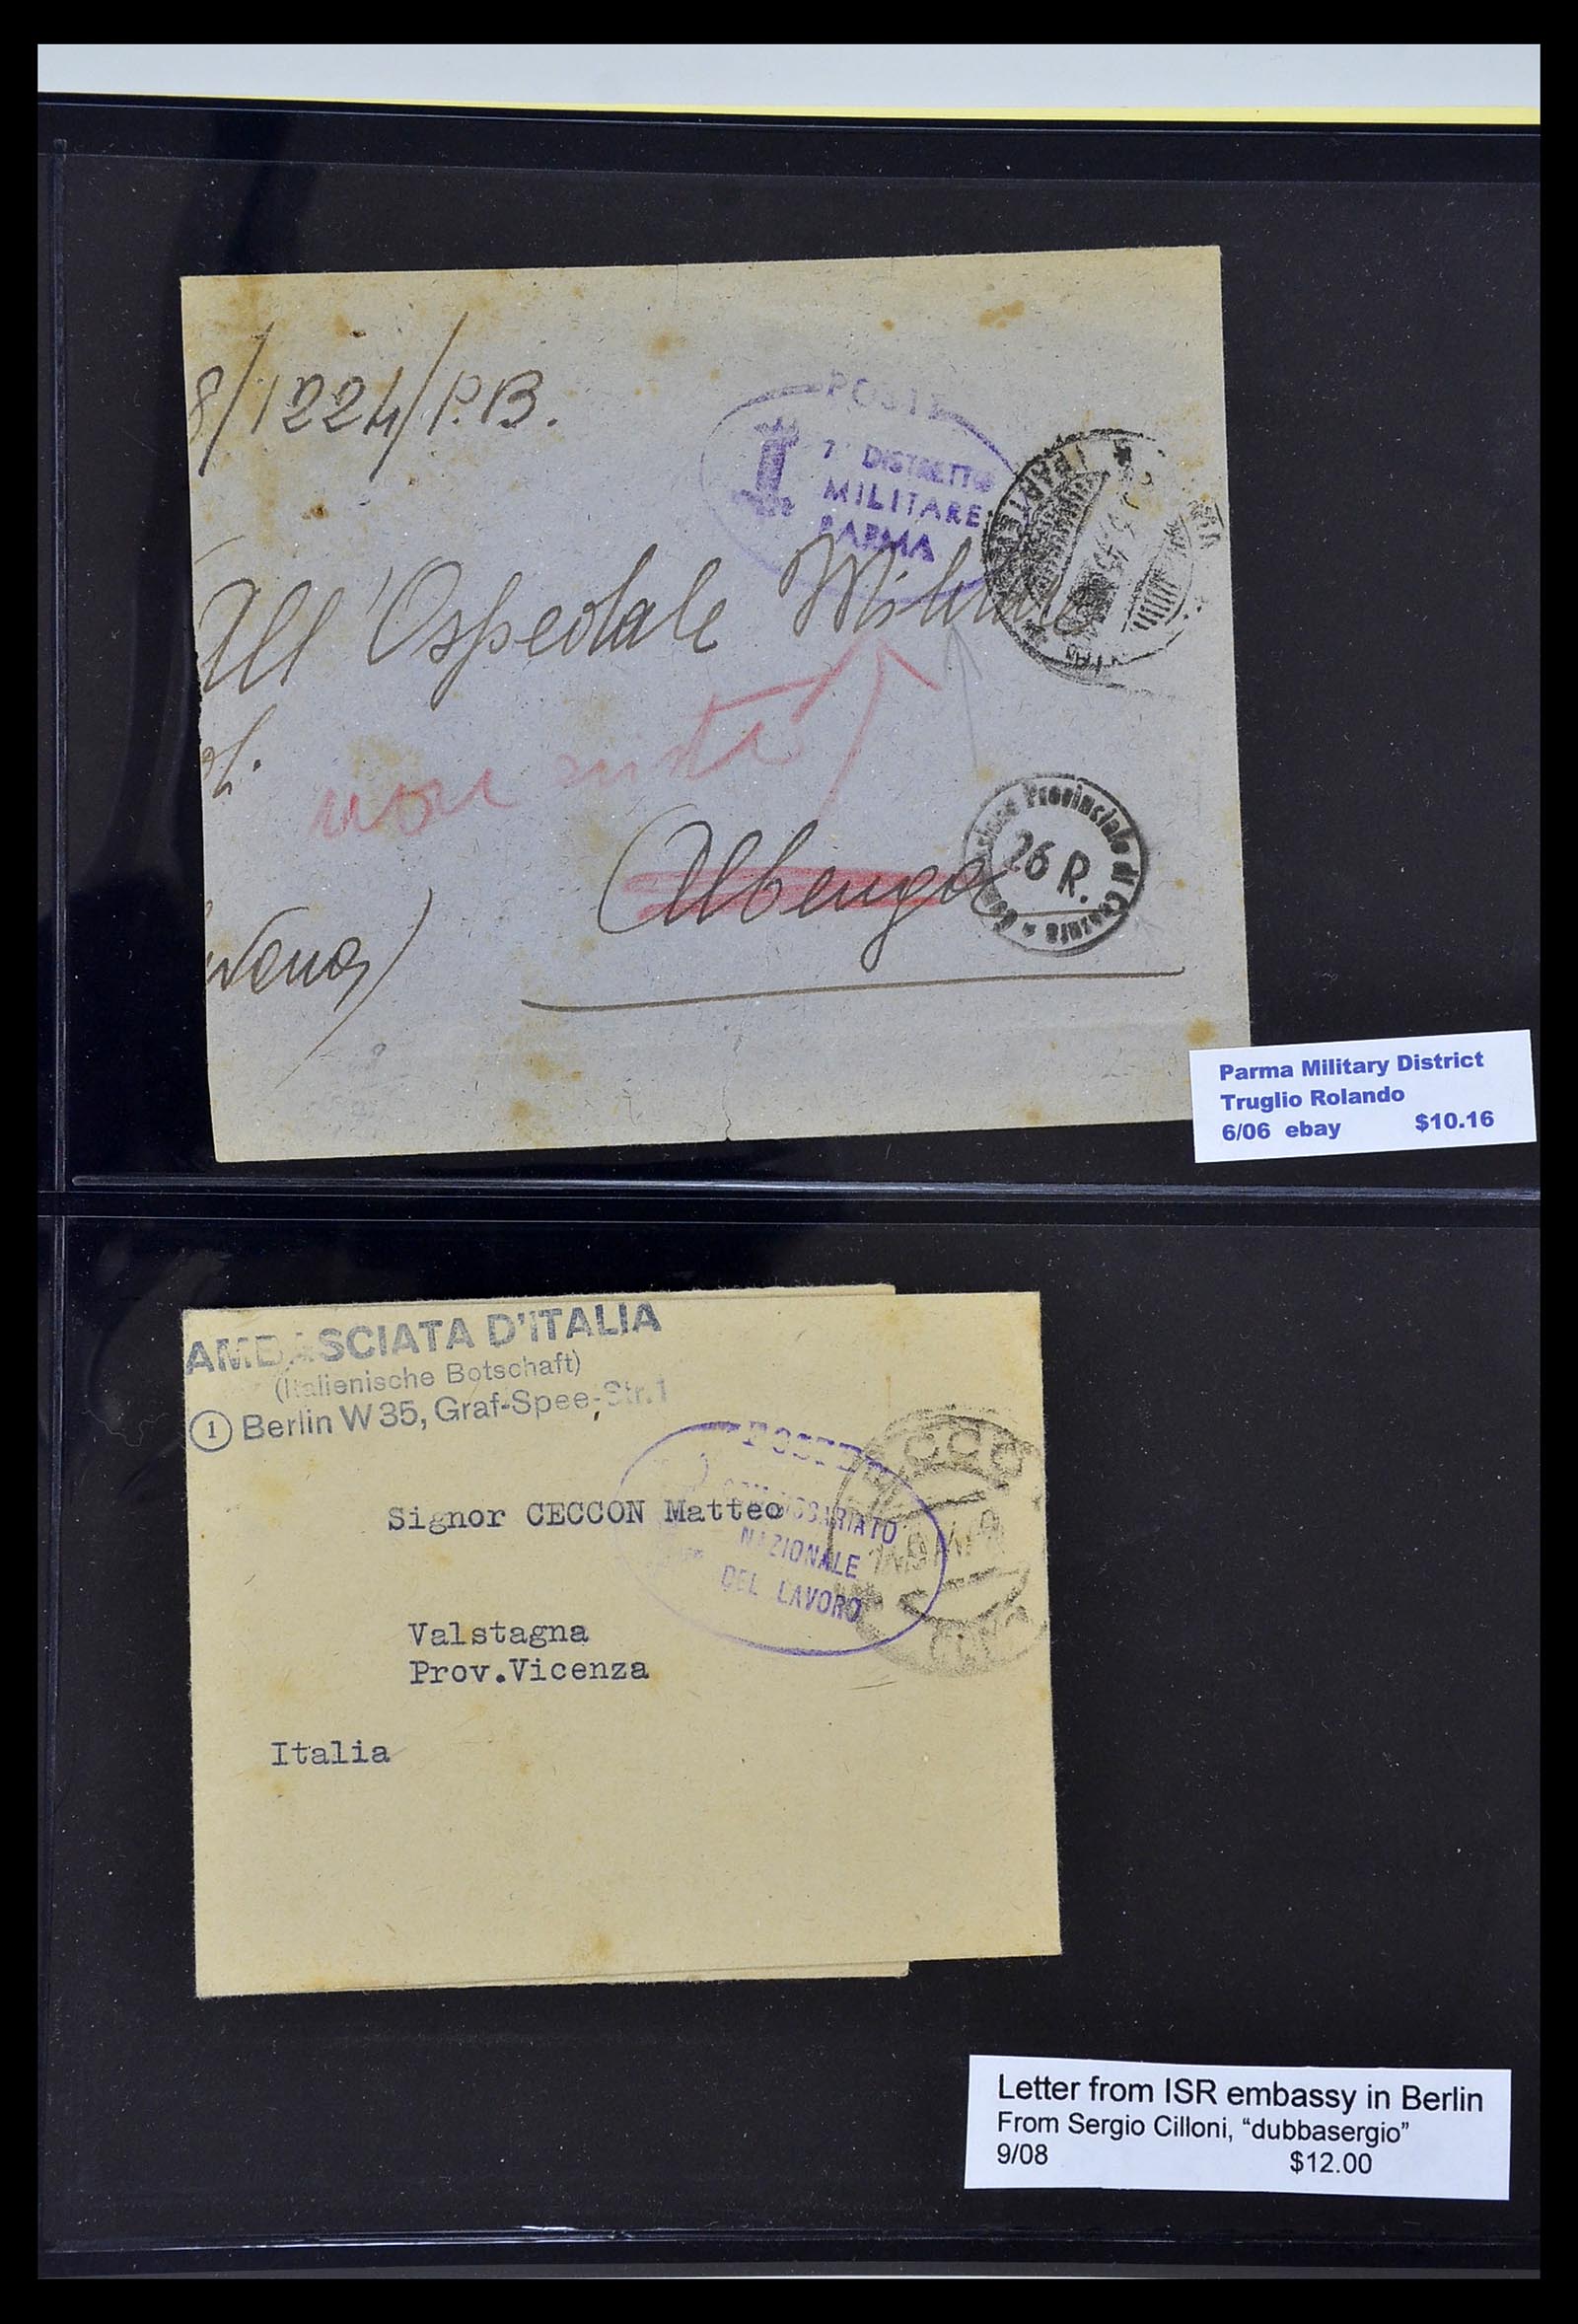 8/1224/P.B.
POSTE
7° DISTRETTO
MILITARE
PARMA
All'Ospedale Militare
non esiste
Albenga
Commissione Provinciale di Censura
26 R.
Parma Military District
Truglio Rolando
6/06 ebay $10.16
AMBASCIATA D'ITALIA
(Italienische Botschaft)
1 Berlin W 35, Graf-Spee-Str. 1
POSTE
COMMISSARIATO
NAZIONALE
DEL LAVORO
Signor CECCON Matteo
Valstagna
Prov.Vicenza
Italia
Letter from ISR embassy in Berlin
From Sergio Cilloni, “dubbasergio”
9/08 $12.00